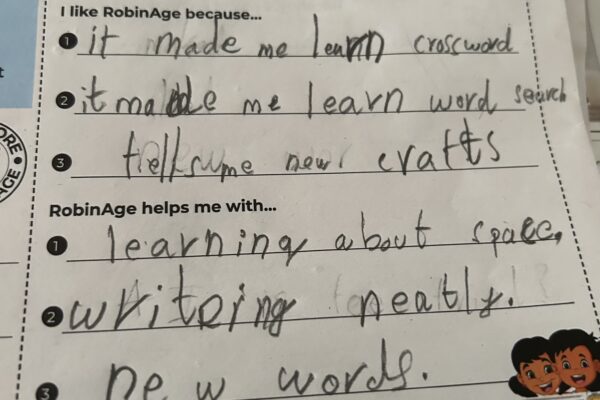 I like RobinAge because...
1 it made me learn croscword
2 it made me learn word search
3 tells me new crafts
RobinAge helps me with...
1 learning about space.
2 writeing neatly.
3 new words.
ORE
AGE
t